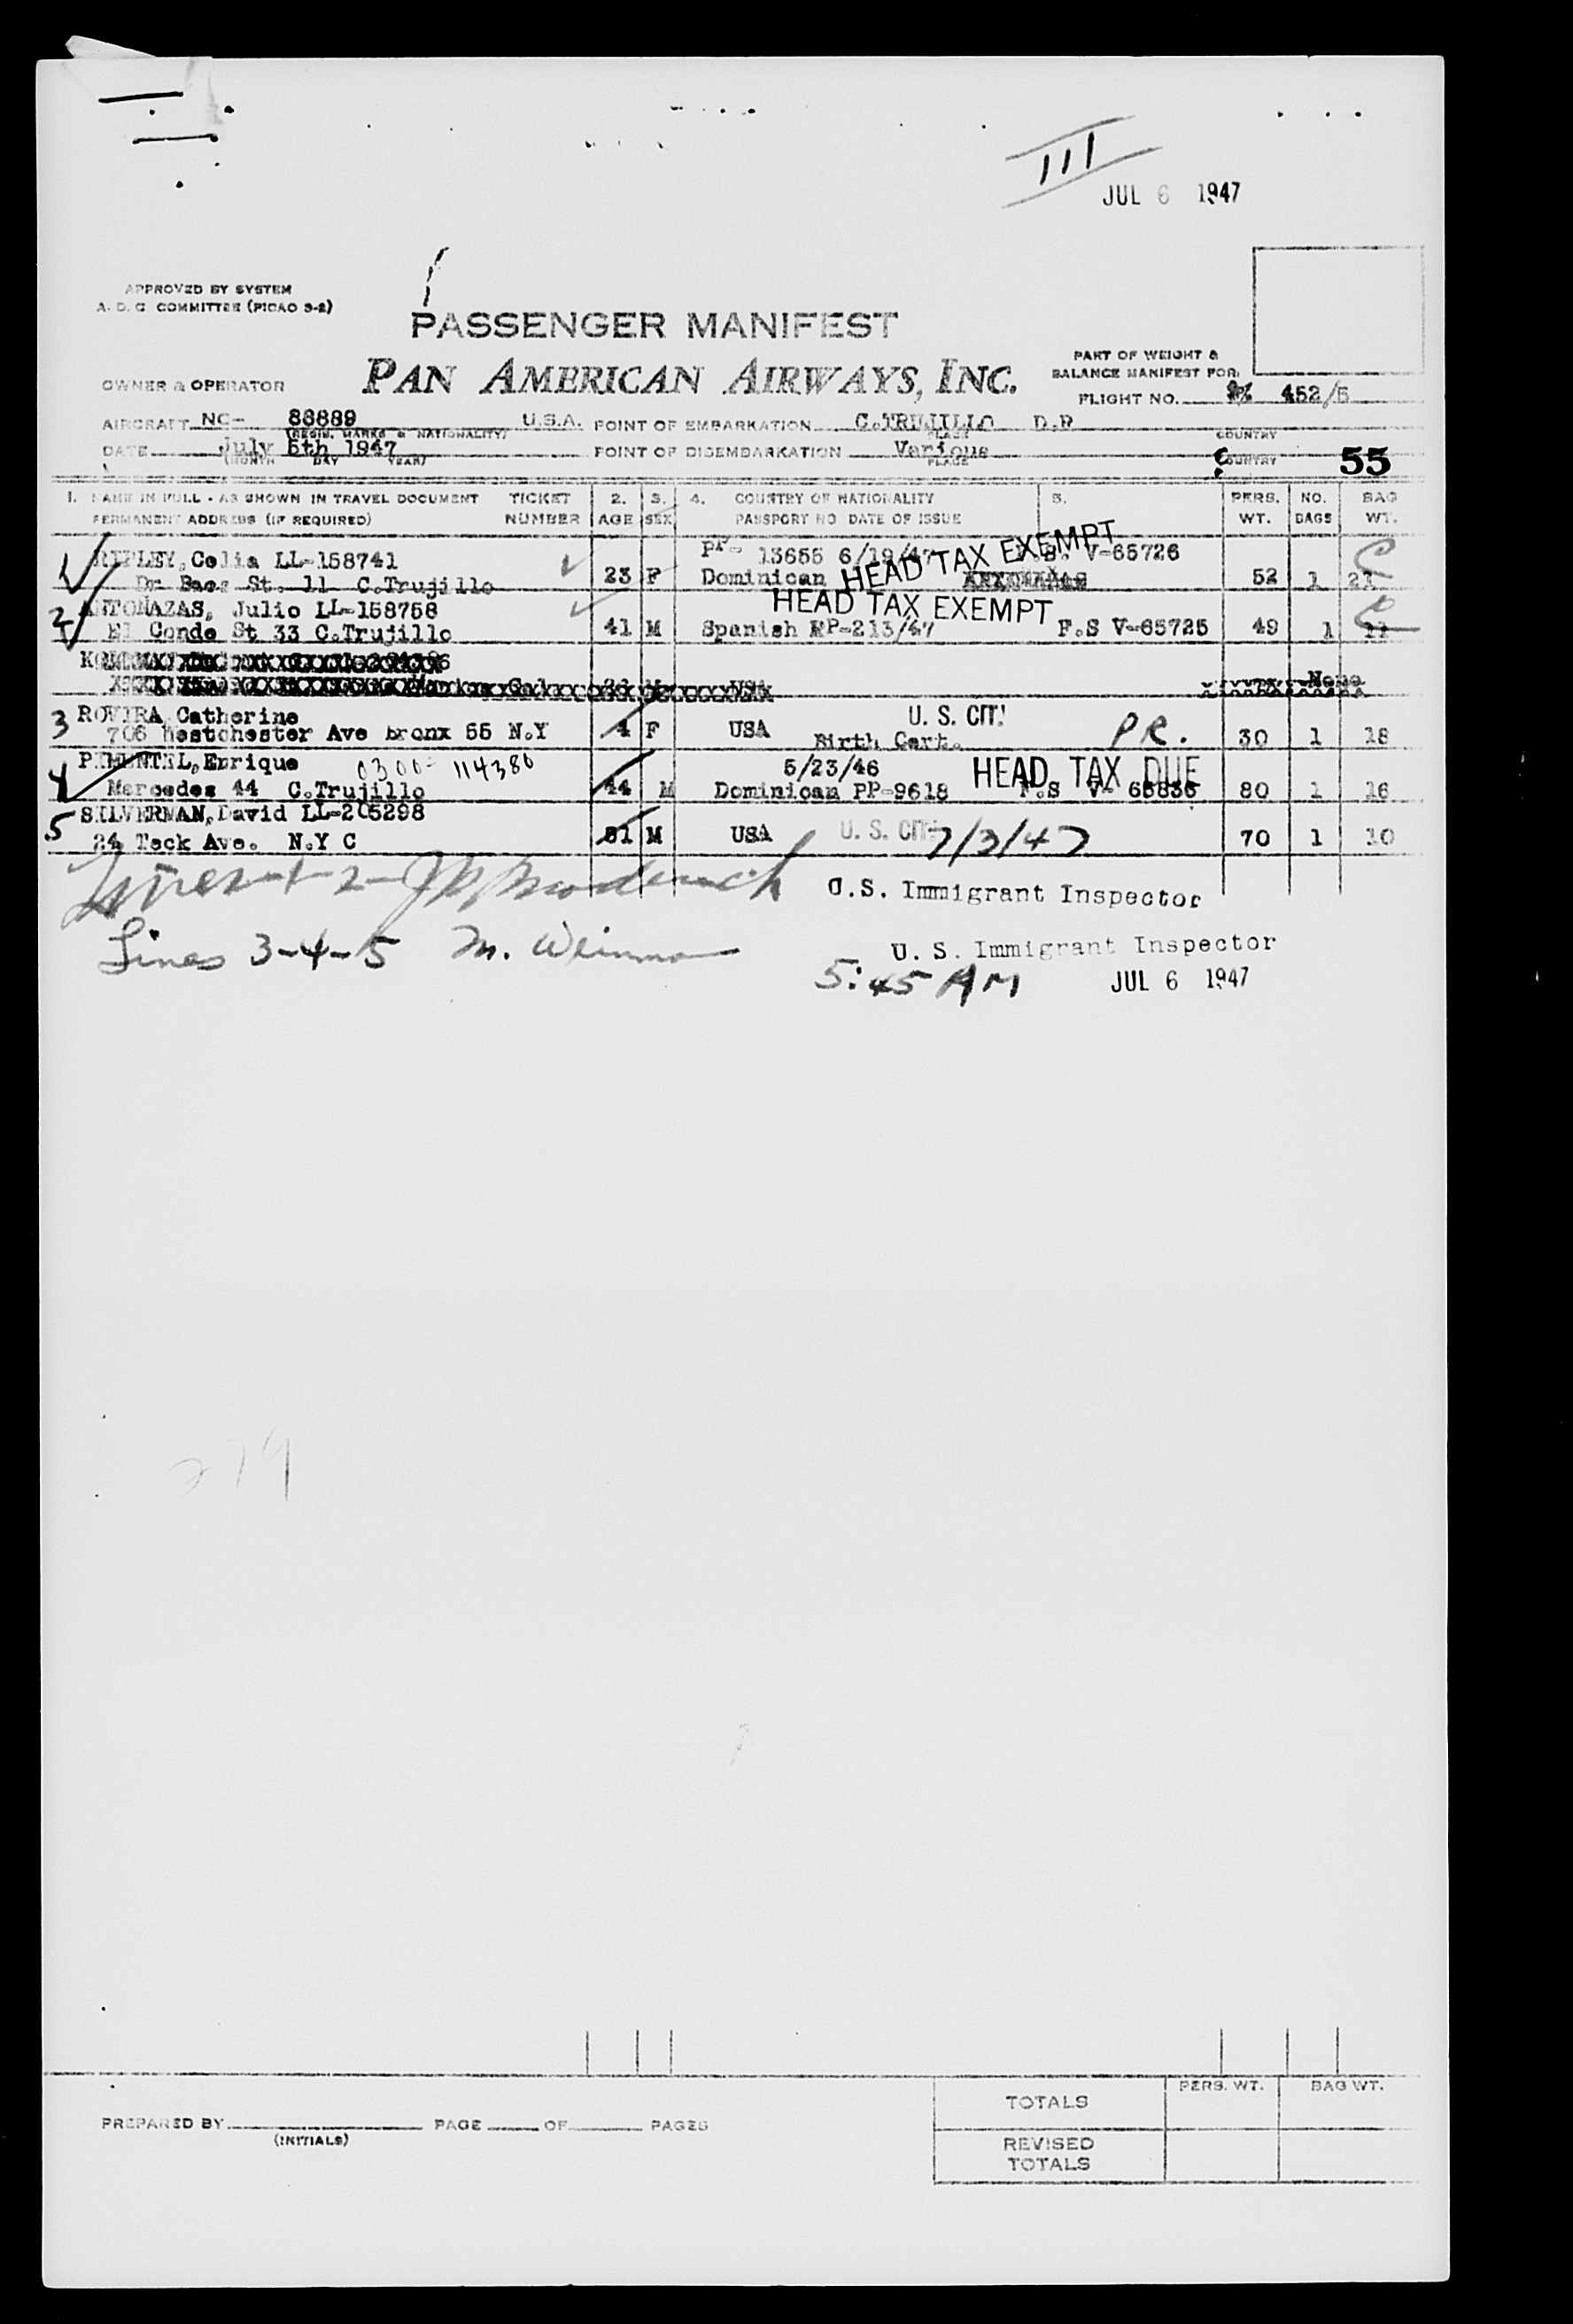 III
JUL 6 1947
APPROVED BY SYSTEM
A. D. C COMMITTEE (PICAO 9-2)
PASSENGER MANIFEST
PAN AMERICAN AIRWAYS, INC.
PART OF WEIGHT &
BALANCE MANIFEST FOR
OWNER & OPERATOR
FLIGHT NO. 452/5
AIRCRAFT NC- 88889 U.S.A. POINT OF EMBARKATION C.TRUJILLO D.R
(REGIS. MARKS & NATIONALITY) PLACE COUNTRY
DATE July 5th 1947 POINT OF DISEMBARKATION Various
(MONTH DAY YEAR) PLACE COUNTRY 55
1. NAME IN FULL - AS SHOWN IN TRAVEL DOCUMENT TICKET 2. 3. 4. COUNTRY OF NATIONALITY 5. PERS. NO. BAG
PERMANENT ADDRESS (IF REQUIRED) NUMBER AGE SEX PASSPORT NO DATE OF ISSUE WT. BAGS WT.
1 RIPLEY, Celia LL-158741 PP- 13655 6/19/47 V-65726
Dr Baez St. 11 C.Trujillo 23 F Dominican HEAD TAX EXEMPT 52 1 21
2 ANTONAZAS, Julio LL-158758 HEAD TAX EXEMPT
El Conde St 33 C.Trujillo 41 M Spanish PP-213/47 F.S V-65725 49 1 11
USA None
3 ROVIRA, Catherine U. S. CIT.
706 Westchester Ave bronx 55 N.Y 4 F USA Birth Cert. P.R. 30 1 18
4 PIMENTEL, Enrique 0300- 114386 5/23/46 HEAD TAX DUE
Mercedes 44 C.Trujillo 44 M Dominican PP-9618 F.S V- 65836 80 1 16
5 SILVERMAN, David LL-205298
24 Teck Ave. N.Y C 51 M USA U. S. CIT. 7/3/47 70 1 10
Lines 1-2- U.S. Immigrant Inspector
Lines 3-4-5 M. U. S. Immigrant Inspector
5:45 AM JUL 6 1947
279
TOTALS PERS. WT. BAG WT.
PREPARED BY PAGE OF PAGES
(INITIALS)
REVISED
TOTALS